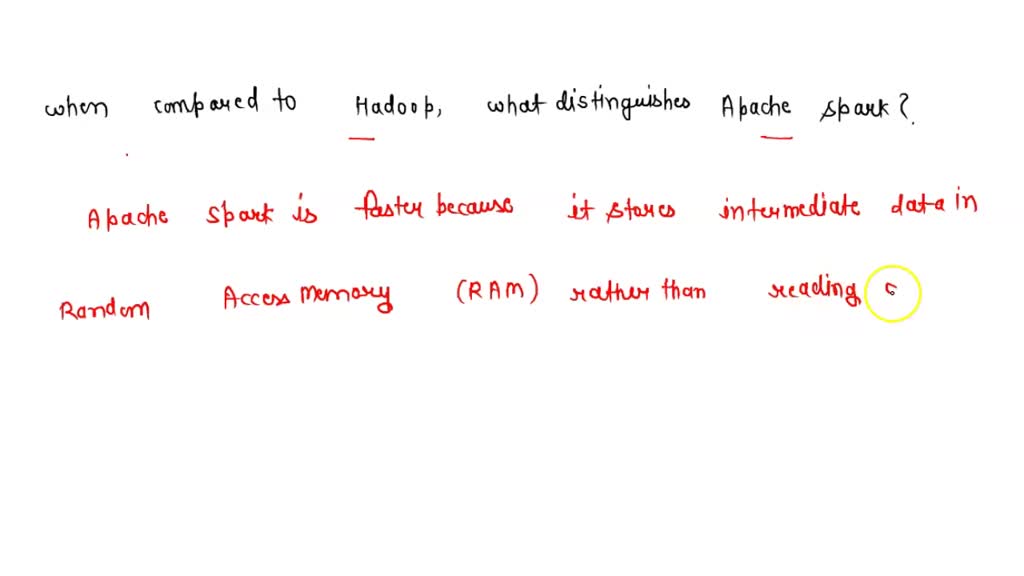 when compared to Hadoop, what distinguishes Apache spark?
Apache spark is faster because it stores intermediate data in
Random Access Memory (RAM) rather than reading